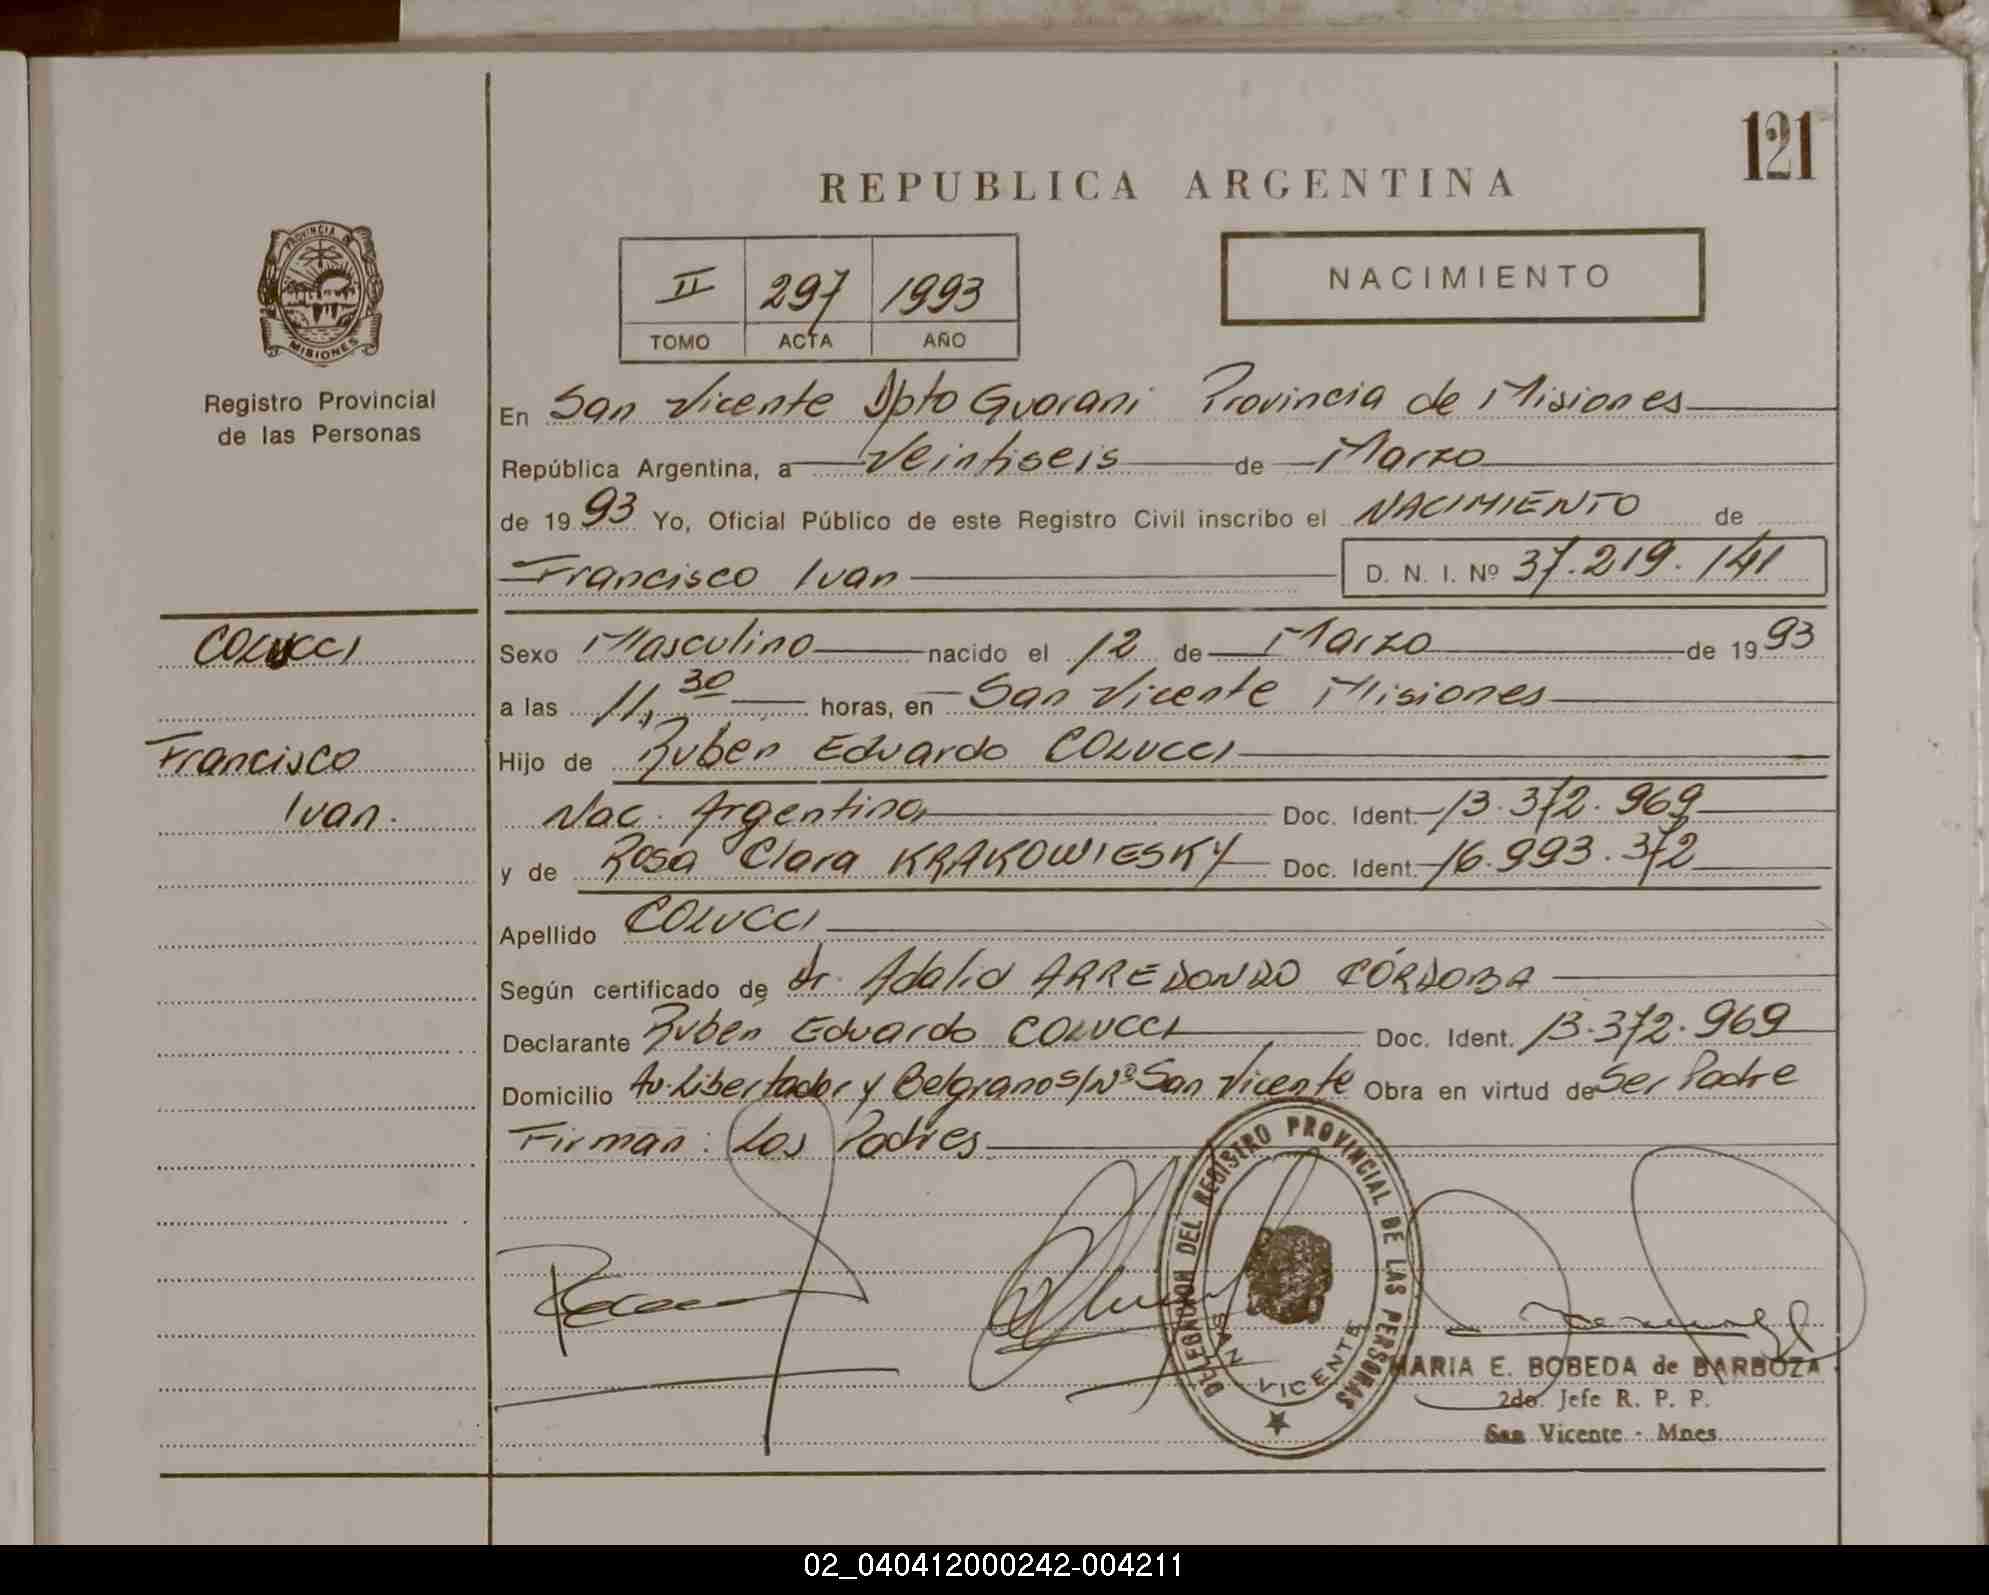 121
REPUBLICA ARGENTINA
II 297 1993
TOMO ACTA AÑO
NACIMIENTO
PROVINCIA DE
MISIONES
Registro Provincial
de las Personas
En San Vicente Dpto Guarani Provincia de Misiones
República Argentina, a Veintiseis de Marzo
de 19 93 Yo, Oficial Público de este Registro Civil inscribo el NACIMIENTO de
Francisco Ivan D. N. I. Nº 37.219.141
COLUCCI
Francisco
Ivan.
Sexo Masculino nacido el 12 de Marzo de 19 93
a las 11,30 horas, en San Vicente Misiones
Hijo de Ruben Eduardo COLUCCI
Nac. Argentina Doc. Ident. 13.372.969
y de Rosa Clara KRAKOWIESKY Doc. Ident. 16.993.372
Apellido COLUCCI
Según certificado de Dr. Adalid ARREDONDO CÓRDOBA
Declarante Rubén Eduardo COLUCCI Doc. Ident. 13.372.969
Domicilio Av. Libertador y Belgrano S/Nº San Vicente Obra en virtud de Ser Padre
Firman: Los Padres
DELEGACION DEL REGISTRO PROVINCIAL DE LAS PERSONAS
SAN VICENTE
MARIA E. BOBEDA de BARBOZA
2do. Jefe R. P. P.
San Vicente - Mnes
02_040412000242-004211